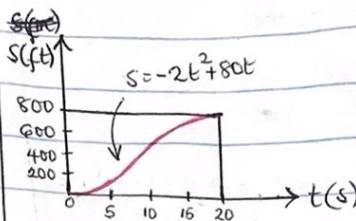 S(ft)
S=-2t²+80t
800
600
400
200
0 5 10 15 20 t(s)